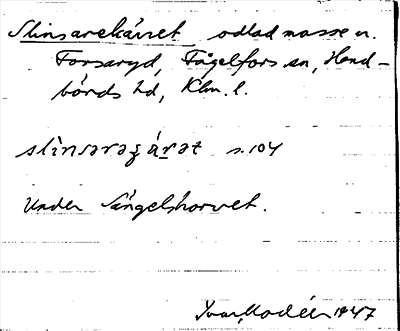 Slinsarekärret odlad mosse n.
Forsaryd, Fågelfors sn, Hand-
börds hd, Klm. l.
slinsaragärat s. 104
Under Sängelshorvet.
Ivar Modéer 1947